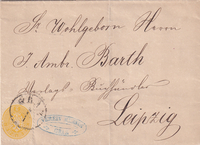 Sr. Wohlgeborn Herrn
J. Ambr. Barth
Verlags-Buchhändler
Leipzig